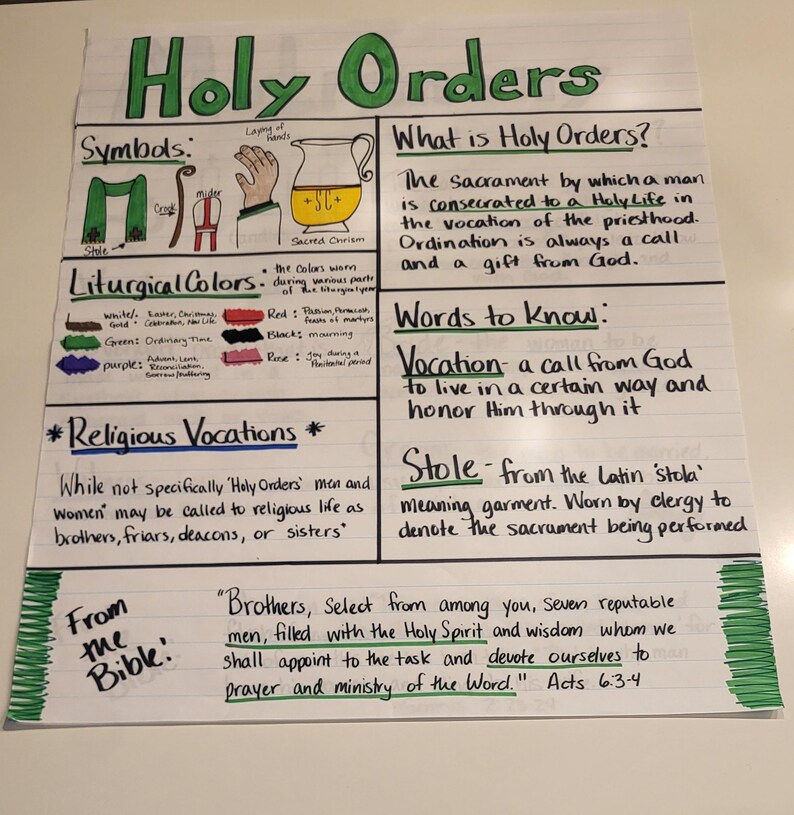 Holy Orders
Symbols:
Laying of
hands
Crook
mider
Stole
+SC+
Sacred Chrism
What is Holy Orders?
The sacrament by which a man
is consecrated to a Holy Life in
the vocation of the priesthood.
Ordination is always a call
and a gift from God.
Liturgical Colors: the colors worn
during various parts
of the liturgical year
White/
Gold: Easter, Christmas,
Celebration, New Life
Green: Ordinary Time
purple: Advent, Lent,
Reconciliation,
Sorrow/Suffering
Red: Passion, Pentecost,
feasts of martyrs
Black: mourning
Rose: Joy during a
Penitential period
Words to Know:
Vocation - a call from God
to live in a certain way and
honor Him through it
Stole - from the Latin 'stola'
meaning garment. Worn by clergy to
denote the sacrament being performed
* Religious Vocations *
While not specifically 'Holy Orders' men and
women* may be called to religious life as
brothers, friars, deacons, or sisters*
From
the
Bible:
"Brothers, select from among you, seven reputable
men, filled with the Holy Spirit and wisdom whom we
shall appoint to the task and devote ourselves to
prayer and ministry of the Word." Acts 6:3-4